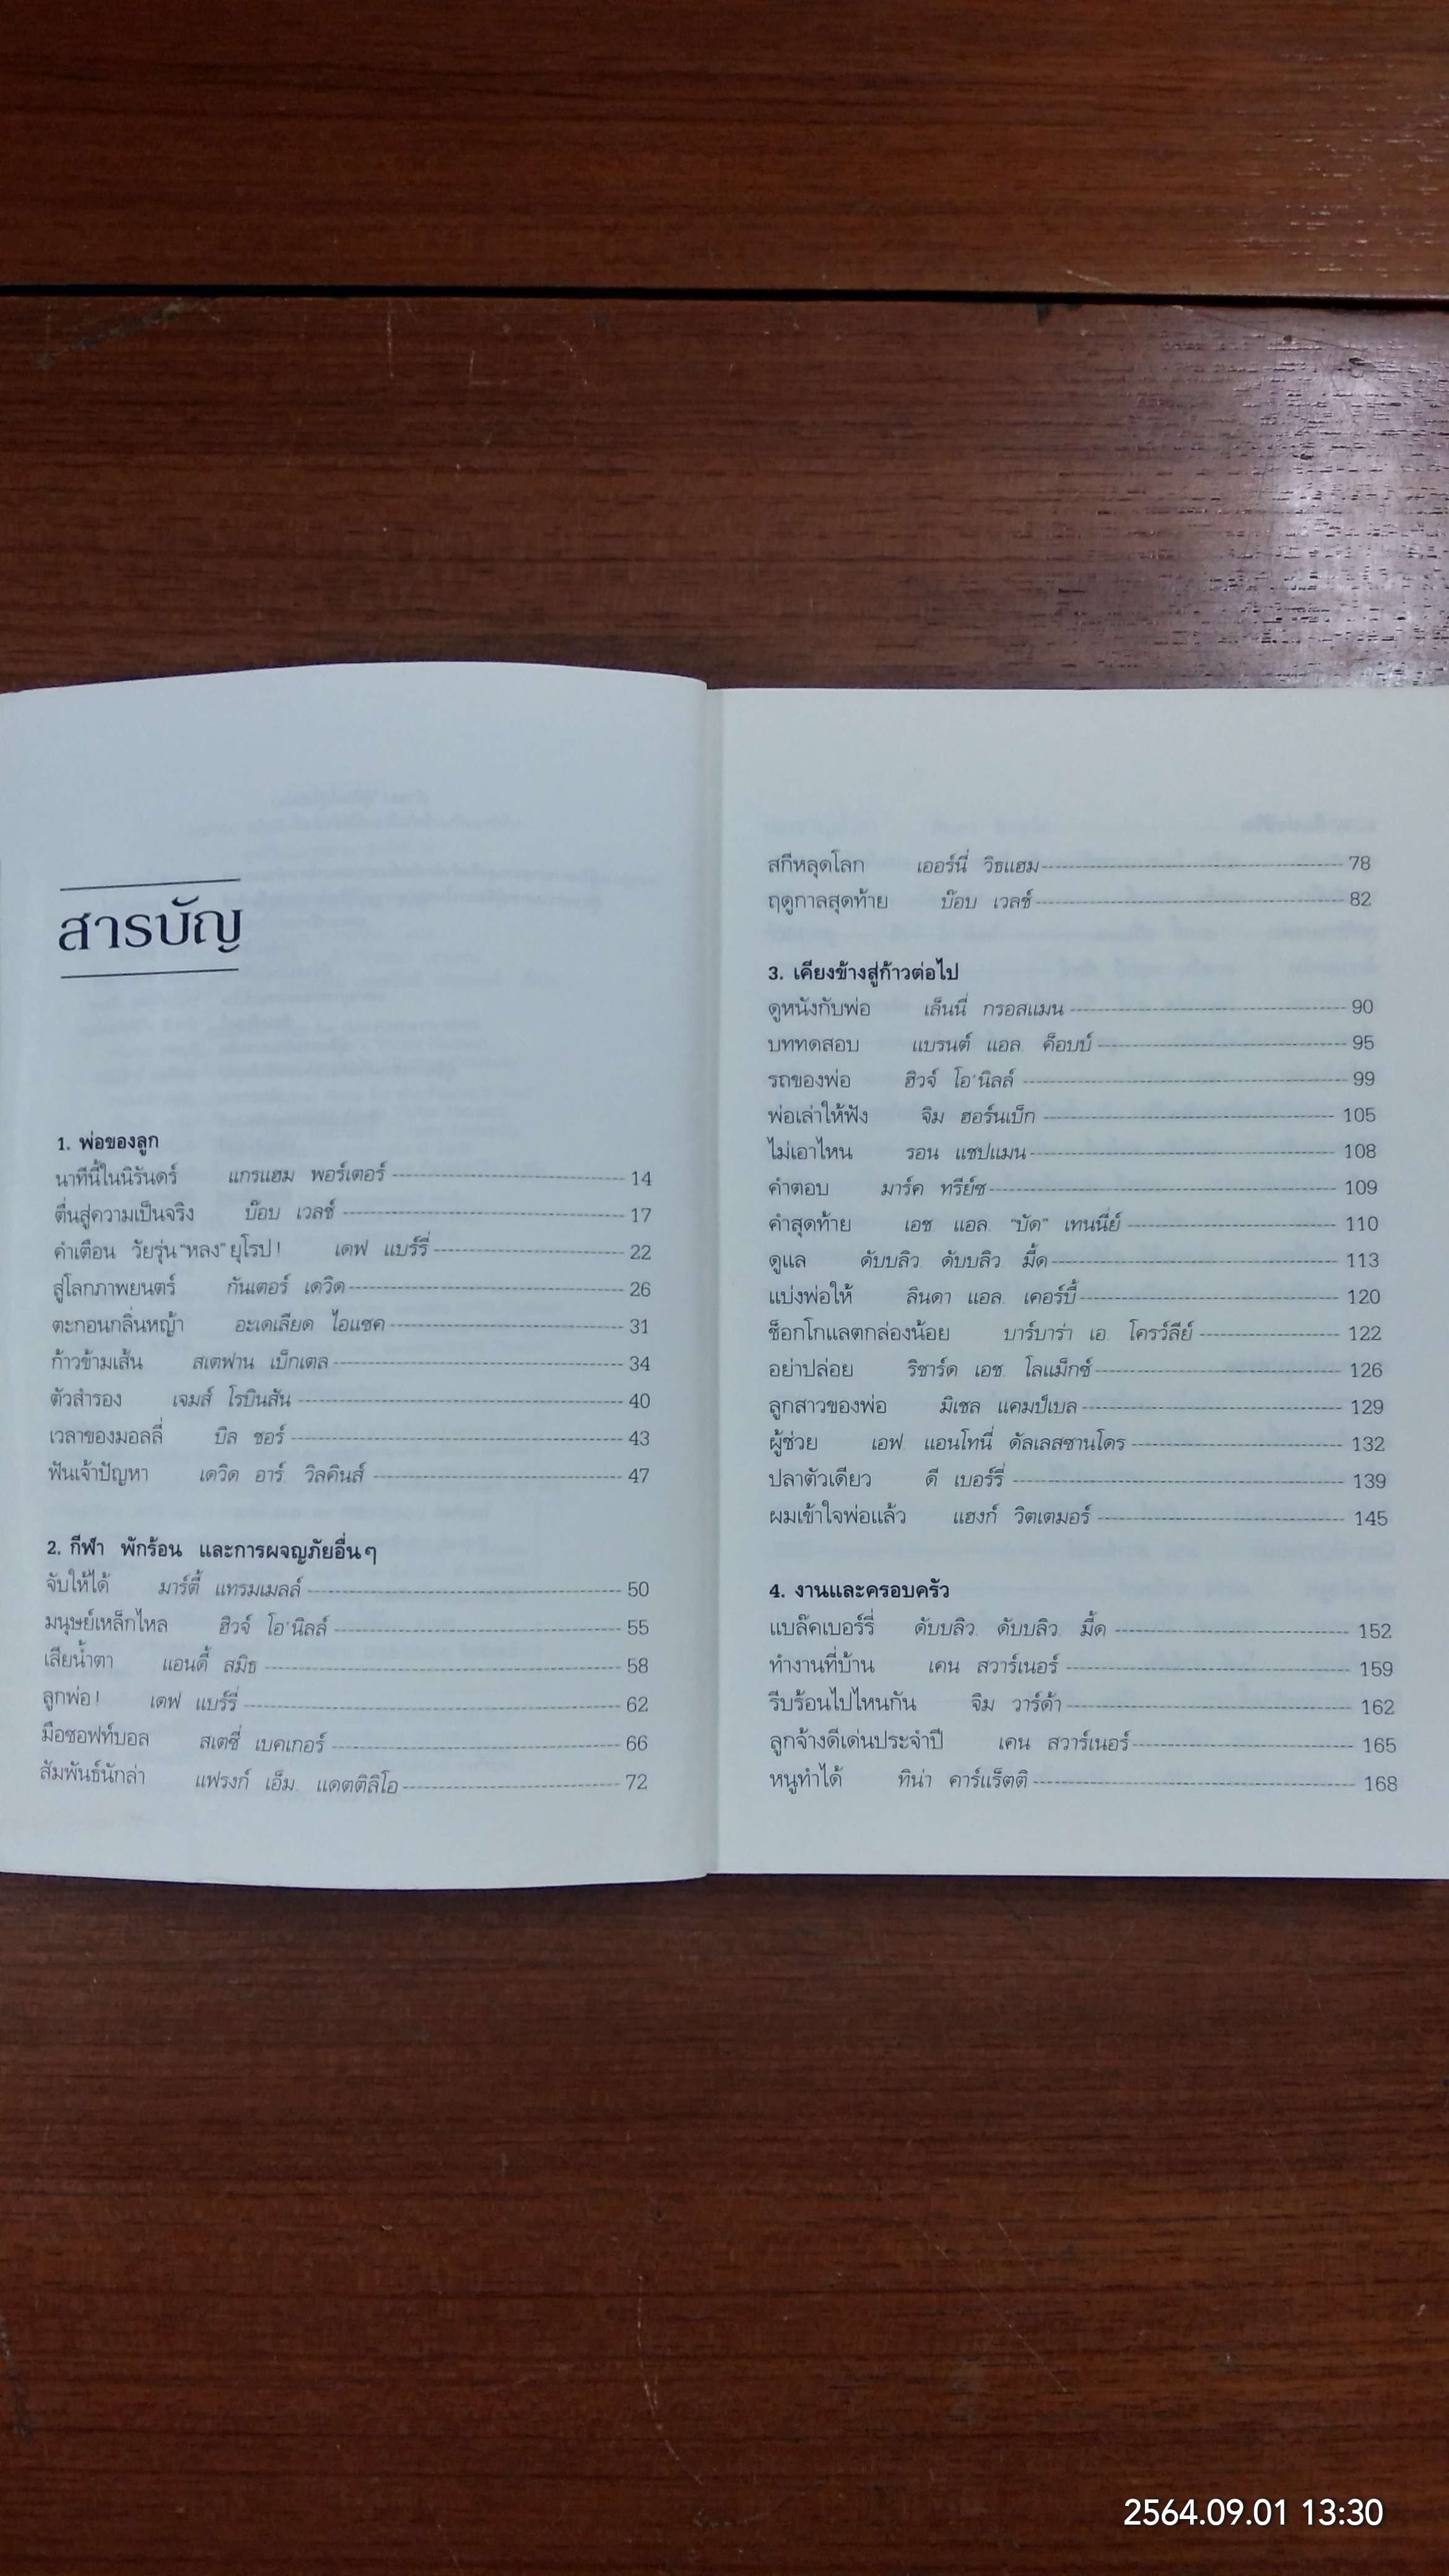 สารบัญ
1. พ่อของลูก
นาทีนี้ในนิรันดร์ แกรแฮม พอร์เตอร์ 14
ตื่นสู่ความเป็นจริง บ๊อบ เวลช์ 17
คำเตือน วัยรุ่น "หลง" ยุโรป ! เดฟ แบร์รี่ 22
สู่โลกภาพยนตร์ กันเตอร์ เดวิด 26
ตะกอนกลิ่นหญ้า อะเดเลียด ไอแซค 31
ก้าวข้ามเส้น สเตฟาน เบ็กเตล 34
ตัวสำรอง เจมส์ โรบินสัน 40
เวลาของมอลลี่ บิล ชอร์ 43
ฟันเจ้าปัญหา เดวิด อาร์. วิลคินส์ 47
2. กีฬา พักร้อน และการผจญภัยอื่นๆ
จับให้ได้ มาร์ตี้ แทรมเมลล์ 50
มนุษย์เหล็กไหล ฮิวจ์ โอ'นิลล์ 55
เสียน้ำตา แอนดี้ สมิธ 58
ลูกพ่อ ! เดฟ แบร์รี่ 62
มือซอฟท์บอล สเตซี่ เบคเกอร์ 66
สัมพันธ์นักล่า แฟรงก์ เอ็ม. แดตติลิโอ 72
สกีหลุดโลก เออร์นี่ วิธแฮม 78
ฤดูกาลสุดท้าย บ๊อบ เวลช์ 82
3. เคียงข้างสู่ก้าวต่อไป
ดูหนังกับพ่อ เล็นนี่ กรอสแมน 90
บททดสอบ แบรนต์ แอล. ค็อบบ์ 95
รถของพ่อ ฮิวจ์ โอ'นิลล์ 99
พ่อเล่าให้ฟัง จิม ฮอร์นเบ็ก 105
ไม่เอาไหน รอน แชปแมน 108
คำตอบ มาร์ค ทรีย์ซ 109
คำสุดท้าย เอช. แอล. "บัด" เทนนี่ย์ 110
ดูแล ดับบลิว. ดับบลิว. มี้ด 113
แบ่งพ่อให้ ลินดา แอล. เคอร์บี้ 120
ช็อกโกแลตกล่องน้อย บาร์บาร่า เอ. โครว์ลีย์ 122
อย่าปล่อย ริชาร์ด เอช. โลแม็กซ์ 126
ลูกสาวของพ่อ มิเชล แคมป์เบล 129
ผู้ช่วย เอฟ. แอนโทนี่ ดัลเลสซานโดร 132
ปลาตัวเดียว ดี เบอร์รี่ 139
ผมเข้าใจพ่อแล้ว แฮงก์ วิตเตมอร์ 145
4. งานและครอบครัว
แบล๊คเบอร์รี่ ดับบลิว. ดับบลิว. มี้ด 152
ทำงานที่บ้าน เคน สวาร์เนอร์ 159
รีบร้อนไปไหนกัน จิม วาร์ด้า 162
ลูกจ้างดีเด่นประจำปี เคน สวาร์เนอร์ 165
หนูทำได้ ทิน่า คาร์แร็ตติ 168
2564.09.01 13:30